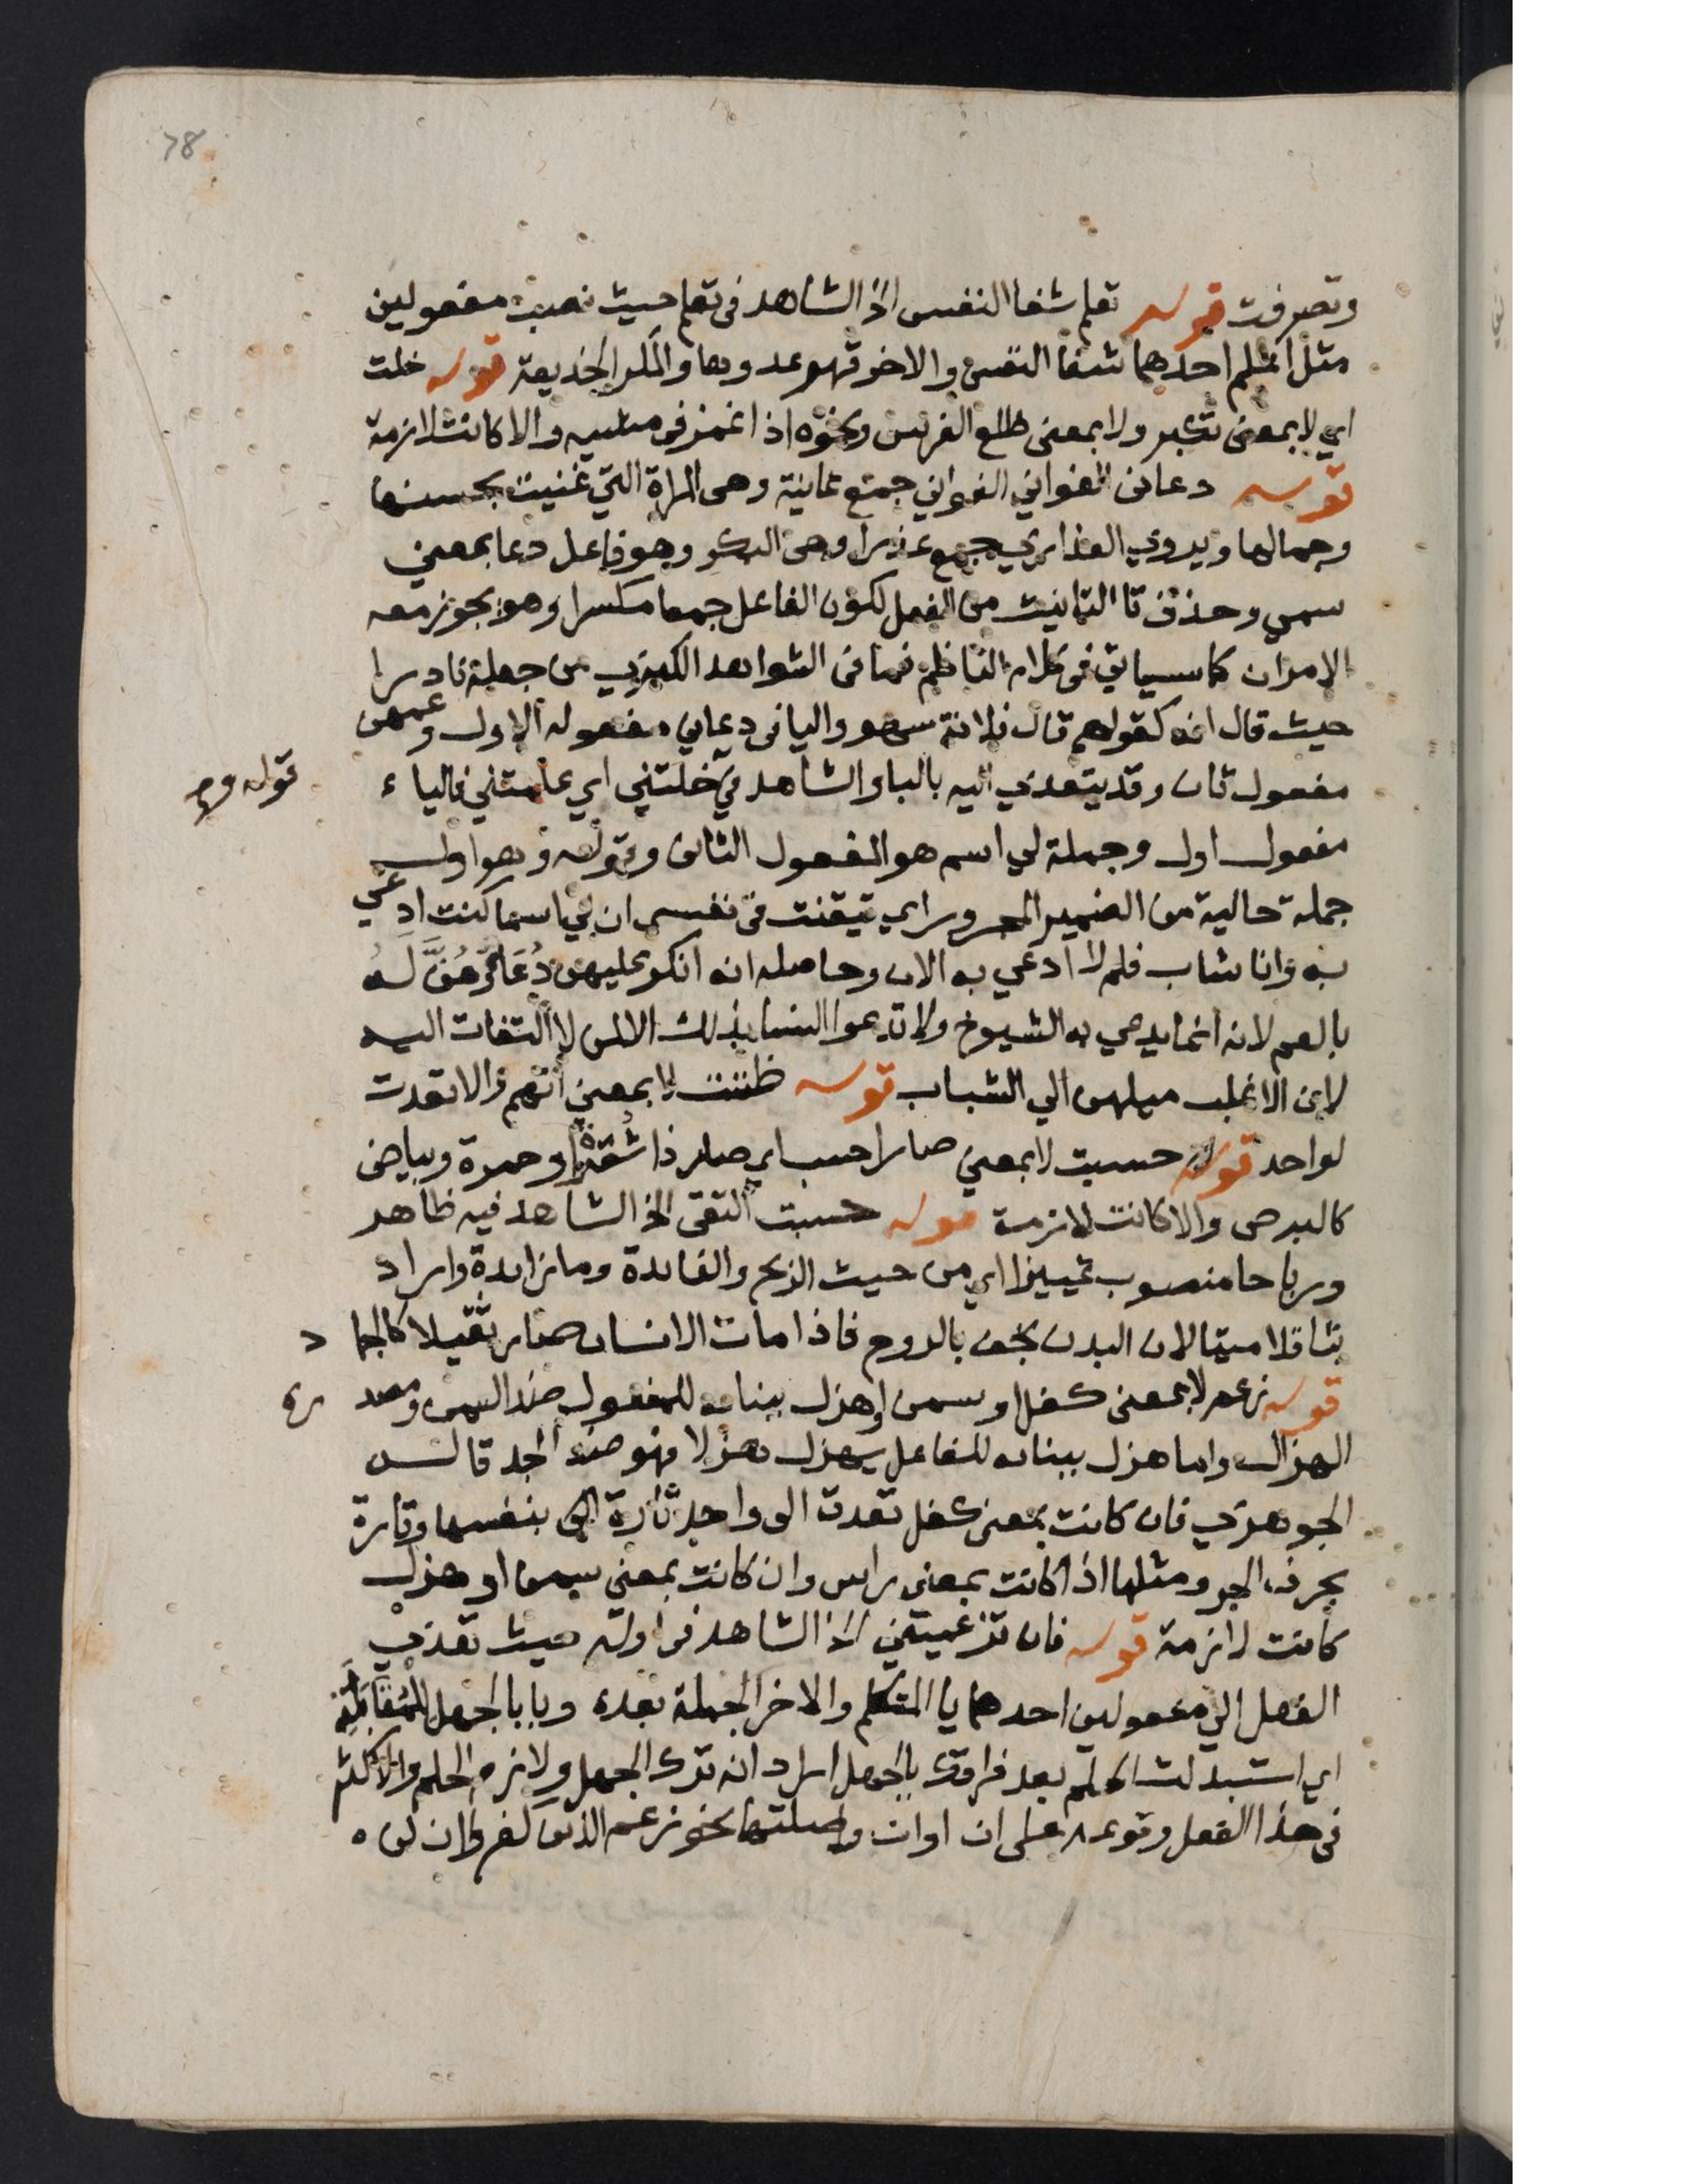 78
وتصرفت قوله تعلم شفا النفس الخ الشاهد في تعلم حيث نصبت مفعولين
مثل اعلم احدهما شفا النفس والاخر قهر عدوها والمكر الخديعة قوله خلت
اي لا بمعنى تكبر ولا بمعنى ظلع الفرس ونحوه اذا غمز في مشيه والا كانت لازمة
قوله دعاني الغواني الغواني جمع غانية وهي المراة التي غنيت بحسنها
وجمالها ويروي العذاري جمع عذرا وهي البكر وهو فاعل دعا بمعني
سمي وحذف تا التانيث من الفعل لكون الفاعل جمعا مكسرا وهو يجوز معه
الامران كما سياتي في كلام الناظم فما في الشواهد الكبري من جعله نادرا
حيث قال انه كقولهم قال فلانة سهو واليا في دعاني مفعوله الاول وعمهن
مفعول ثان وقد يتعدي اليه بالبا والشاهد في خلتني اي علمتني فالياء
قوله وجـ
مفعول اول وجملة لي اسم هو المفعول الثاني وقوله وهو اول
جملة حالية من الضمير المجرور اي تيقنت في نفسي ان لي اسما كنت ادعي
به وانا شاب فلم لا ادعي به الان وحاصله انه انكر عليهن دُعَاؤهُنَّ لَهُ
بالعم لانه انما يدعي به الشيوخ ولا تدعوا النسا بذلك الا لمن لا التفات اليه
لان الاغلب ميلهن الي الشباب قوله ظننت لا بمعني اتهم والا تعدت
لواحد قوله حسبت لا بمعني صار احسب اي صار ذا شقرة او حمرة وبياض
كالبرص والا كانت لازمة قوله حسبت التقى الخ الشاهد فيه ظاهر
ورباحا منصوب تمييزا اي من حيث الربح والفايدة وما زايدة واراد
بثاقلا ميتا لان البدن يخف بالروح فاذا مات الانسان صار ثقيلا كالجما د
قوله زعم لا بمعنى كفل او سمن او هزل ببنائه للمفعول ضد السمن ومصد ره
الهزال واما هزل ببنائه للفاعل يهزل هزلا فهو ضد الجد قاله
الجوهري فان كانت بمعنى كفل تعدت الى واحد تارة بنفسها وتارة
بحرف الجر ومثلها اذا كانت بمعنى راس وان كانت بمعنى سمن او هزل
كانت لازمة قوله فان تزعميني الخ الشاهد في اوله حيث تعدي
الفعل الي مفعولين احدهما يا المتكلم والاخر الجملة بعده وبا بالجهل للمُقَابَلَةِ
اي استبدلت الحلم بعد فراقك بالجهل اراد انه ترك الجهل ولازم الحلم والاكثر
في هذا الفعل وقوعه على ان اوان وصلتها نحو زعم الذين كفروا ان لن ه